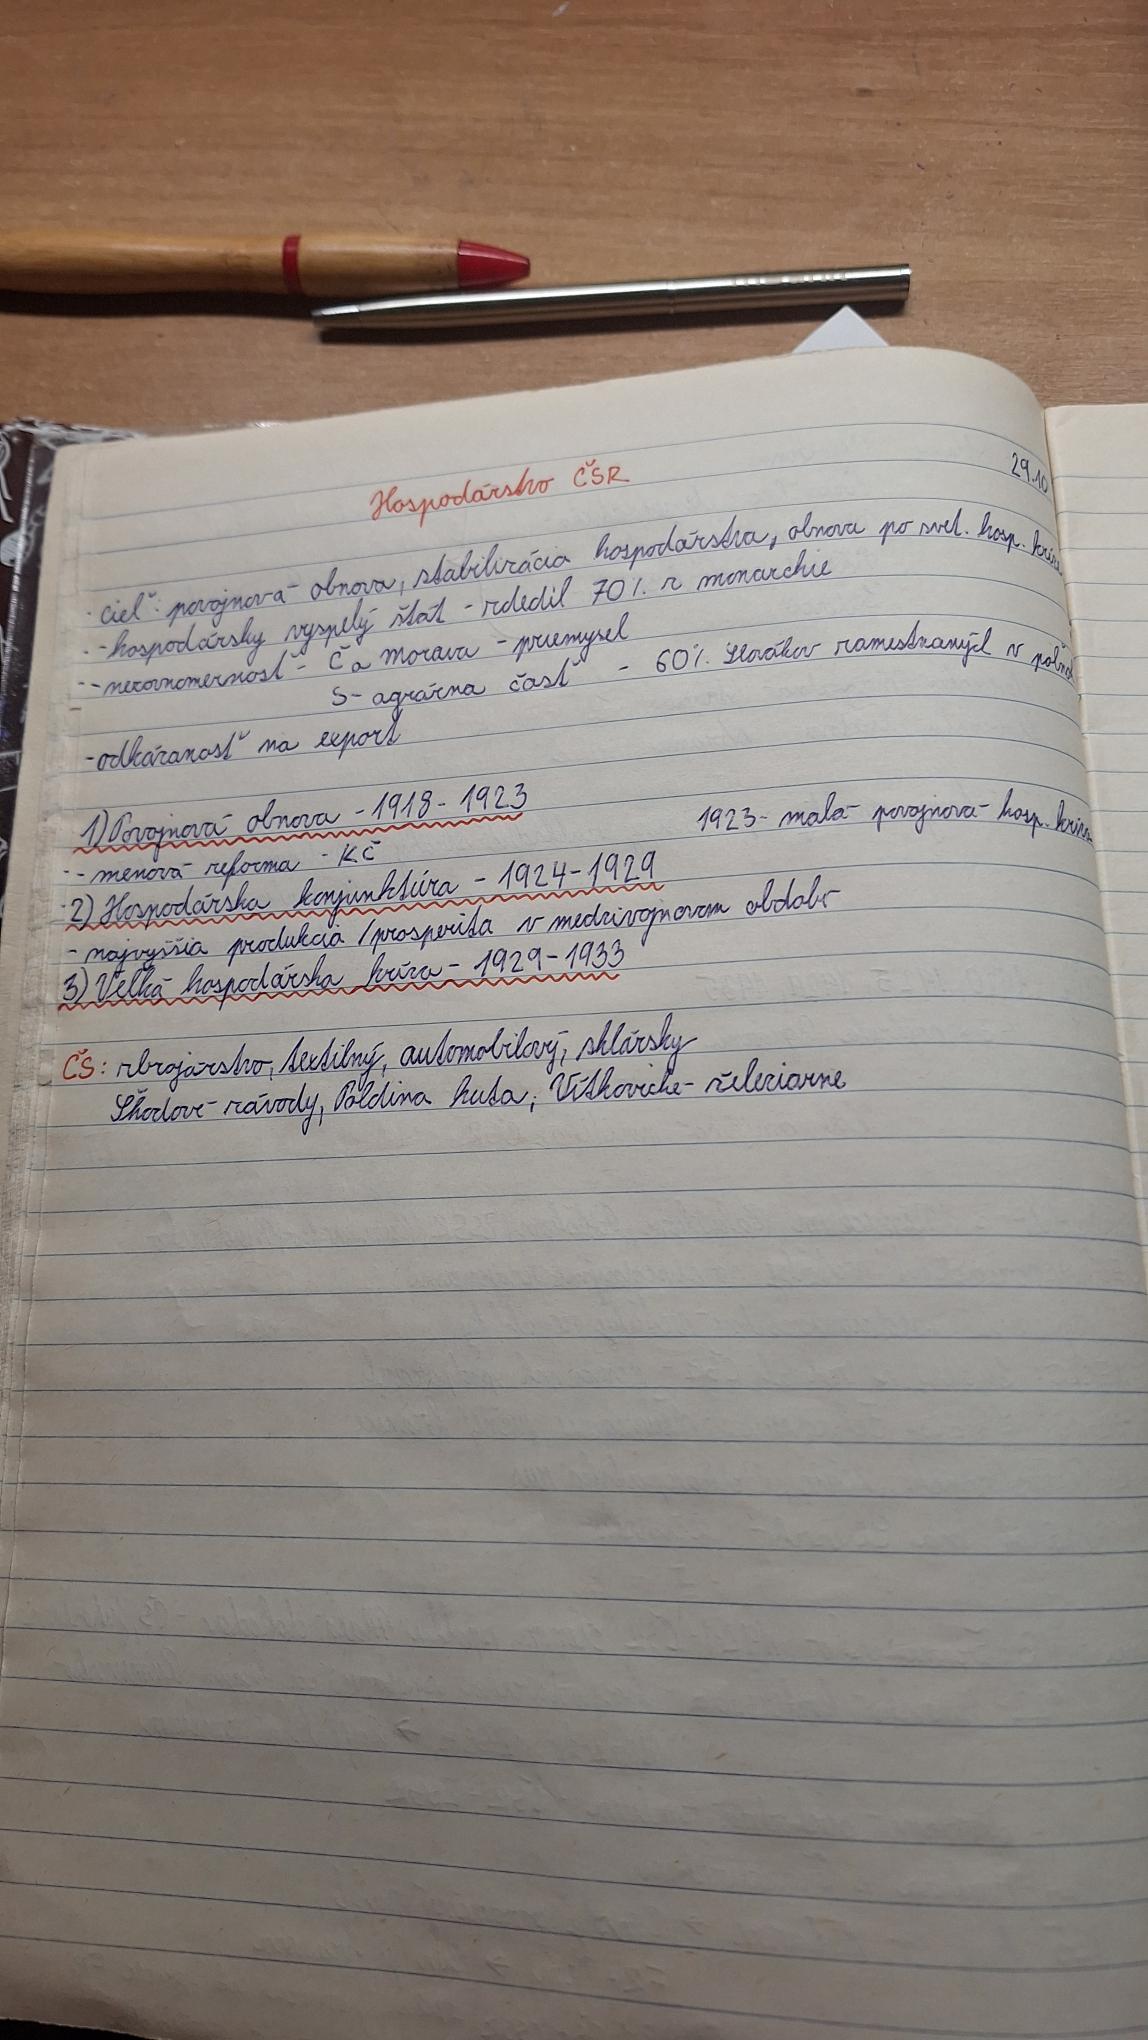 29.10
Hospodárstvo ČSR
- cieľ: povojnová obnova, stabilizácia hospodárstva, obnova po svet. hosp.
- hospodársky vyspelý štát - zdedil 70% z monarchie
- nerovnomernosť - Č a Morava - priemysel
S - agrárna časť - 60% Slovákov zamestnaných v
- odkázanosť na export
1) Povojnová obnova - 1918 - 1923
1923 - malá povojnová hosp. kríza
- menová reforma - Kč
2) Hospodárska konjunktúra - 1924 - 1929
- najvyššia produkcia / prosperita v medzivojnovom období
3) Veľká hospodárska kríza - 1929 - 1933
ČS: zbrojárstvo, textilný, automobilový, sklársky
Škodové závody, Poldina huta, Vítkovické železiarne